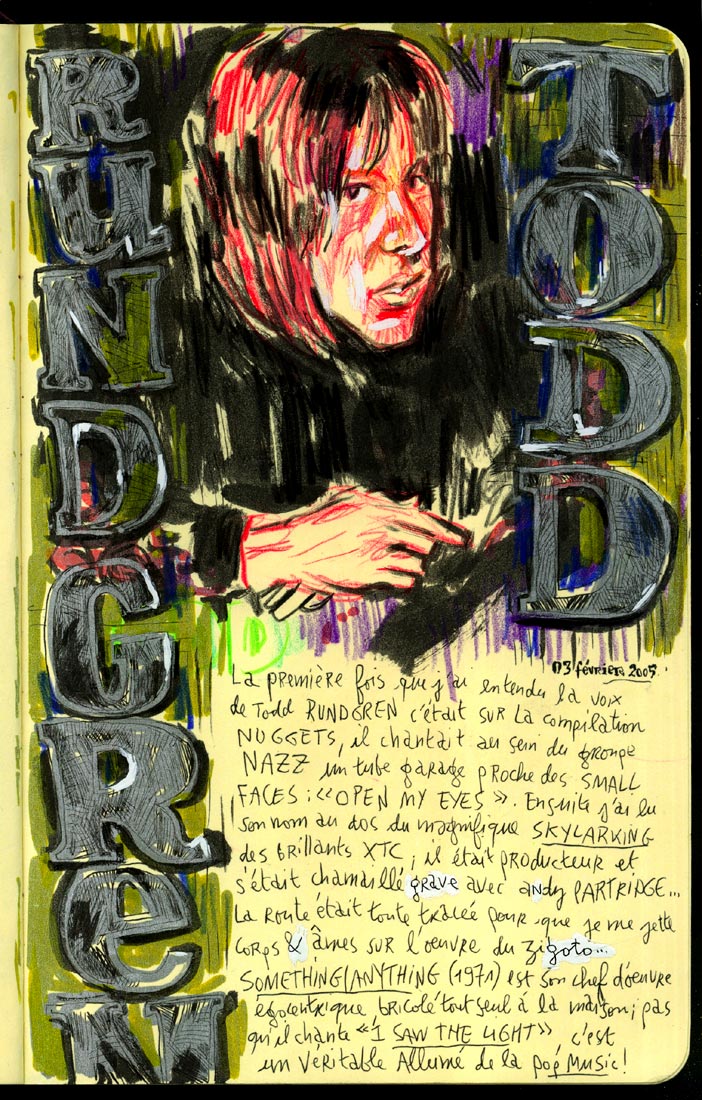 TODD
RUNDGREN
03 février 2005.
La première fois que j'ai entendu la voix
de Todd RUNDGREN c'était sur la compilation
NUGGETS, il chantait au sein du groupe
NAZZ un tube garage proche des SMALL
FACES : "OPEN MY EYES". Ensuite j'ai lu
son nom au dos du magnifique SKYLARKING
des brillants XTC ; il était producteur et
s'était chamaillé grave avec andy PARTRIDGE...
La route était toute tracée pour que je me jette
corps & âmes sur l'oeuvre du zigoto...
SOMETHING/ANYTHING (1971) est son chef d'oeuvre
égocentrique, bricolé tout seul à la maison ; pas
qu'il chante "I SAW THE LIGHT" c'est
un véritable Allumé de la pop Music !